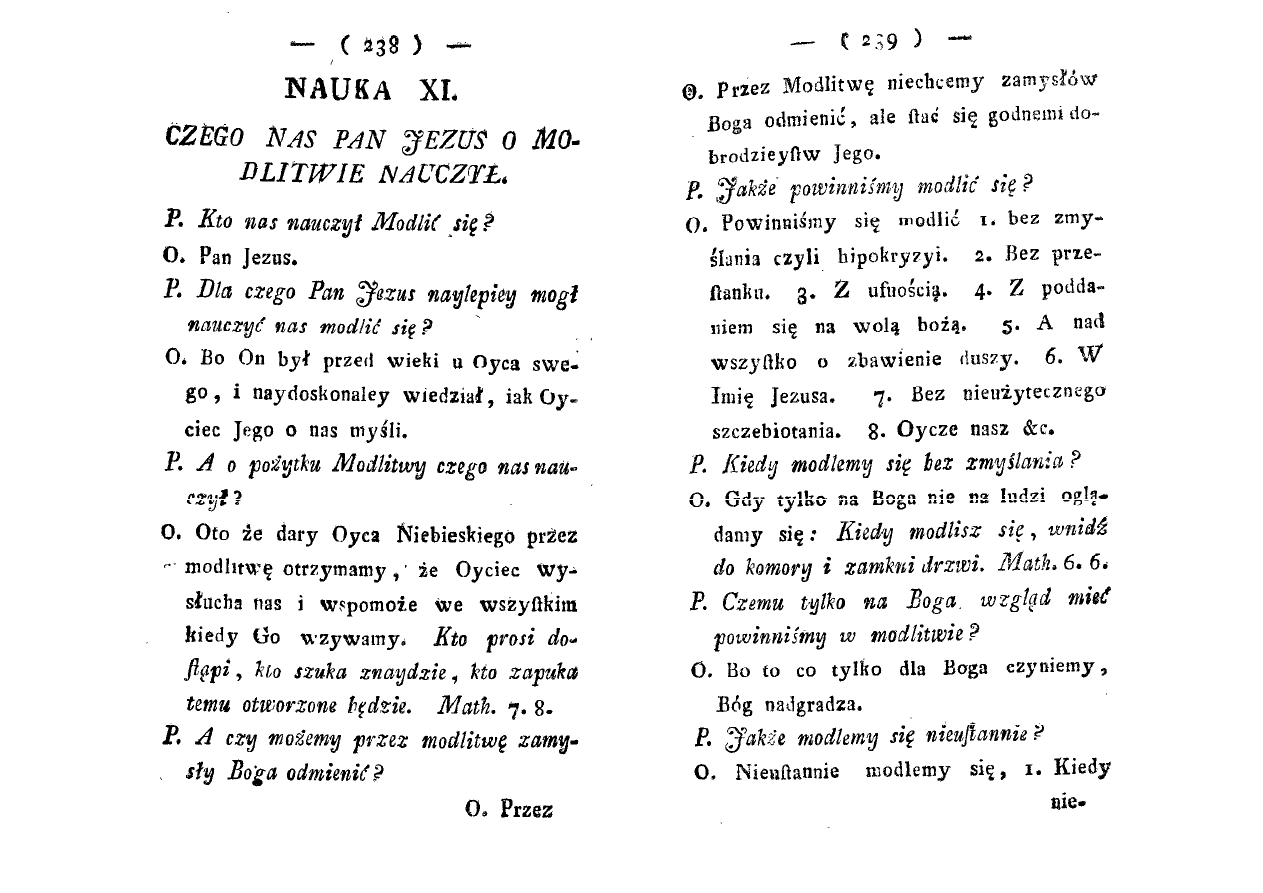 — ( 238 ) —
NAUKA XI.
CZEGO NAS PAN JEZUS O MO-
DLITWIE NAUCZYŁ.
P. Kto nas nauczył Modlić się?
O. Pan Jezus.
P. Dla czego Pan Jezus naylepiey mogł
nauczyć nas modlić się?
O. Bo On był przed wieki u Oyca swe-
go, i naydoskonaley wiedział, iak Oy-
ciec Jego o nas myśli.
P. A o pożytku Modlitwy czego nas nau-
czył?
O. Oto że dary Oyca Niebieskiego przez
modlitwę otrzymamy, że Oyciec wy-
słucha nas i wspomoże we wszyſtkim
kiedy Go wzywamy. Kto prosi do-
ſtąpi, kto szuka znaydzie, kto zapuka
temu otworzone będzie. Math. 7. 8.
P. A czy możemy przez modlitwę zamy-
sły Boga odmienić?
O. Przez
— ( 239 ) —
O. Przez Modlitwę niechcemy zamysłów
Boga odmienić, ale ſtać się godnemi do-
brodzieyſtw Jego.
P. Jakże powinniśmy modlić się?
O. Powinniśmy się modlić 1. bez zmy-
ślania czyli hipokryzyi. 2. Bez prze-
ſtanku. 3. Z ufnością. 4. Z podda-
niem się na wolą bożą. 5. A nad
wszyſtko o zbawienie duszy. 6. W
Imię Jezusa. 7. Bez nieużytecznego
szczebiotania. 8. Oycze nasz &c.
P. Kiedy modlemy się bez zmyślania?
O. Gdy tylko na Boga nie na ludzi oglą-
damy się: Kiedy modlisz się, wnidź
do komory i zamkni drzwi. Math. 6. 6.
P. Czemu tylko na Boga wzgląd mieć
powinniśmy w modlitwie?
O. Bo to co tylko dla Boga czyniemy,
Bóg nadgradza.
P. Jakże modlemy się nieuſtannie?
O. Nieuſtannie modlemy się, 1. Kiedy
nie-